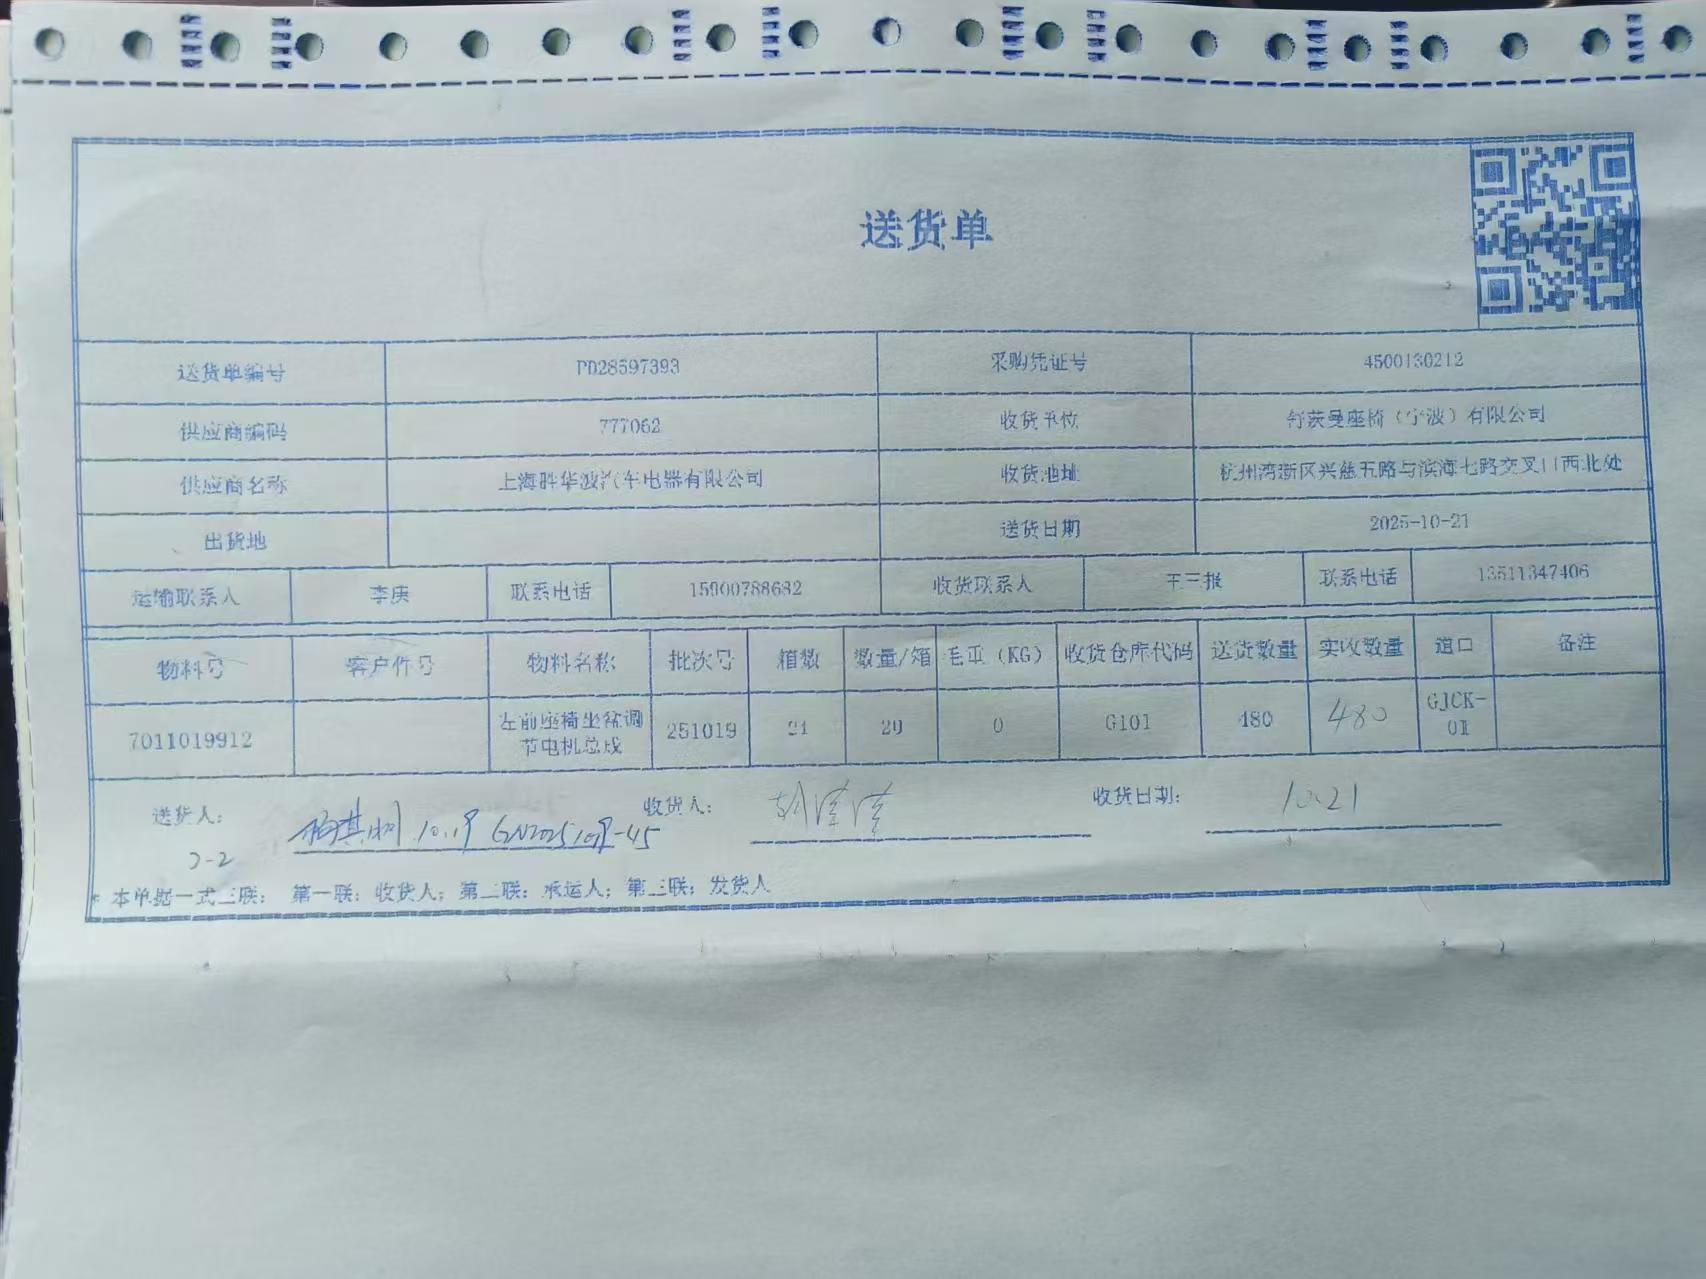 送货单
送货单编号 PD28597393 采购凭证号 4500130212
供应商编码 777062 收货单位 舒茨曼座椅（宁波）有限公司
供应商名称 上海胜华波汽车电器有限公司 收货地址 杭州湾新区兴慈五路与滨海七路交叉口西北处
出货地 送货日期 2025-10-21
运输联系人 李庚 联系电话 15900788682 收货联系人 王三报 联系电话 13511347406
物料号 客户件号 物料名称 批次号 箱数 数量/箱 毛重（KG） 收货仓库代码 送货数量 实收数量 道口 备注
7011019912 左前座椅坐盆调节电机总成 251019 24 20 0 G101 480 480 GJCK-01
送货人： 10.19 收货人： 收货日期： 10.21
* 本单据一式三联： 第一联：收货人；第二联：承运人；第三联：发货人